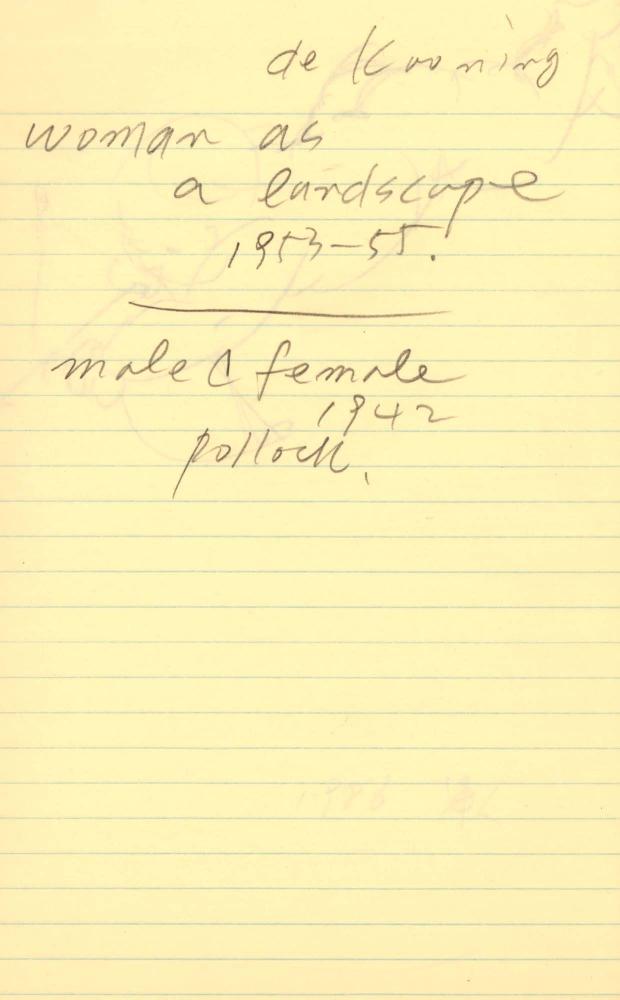 de Kooning
woman as
a landscape
1953-55.
male & female
1942
pollock.
1986